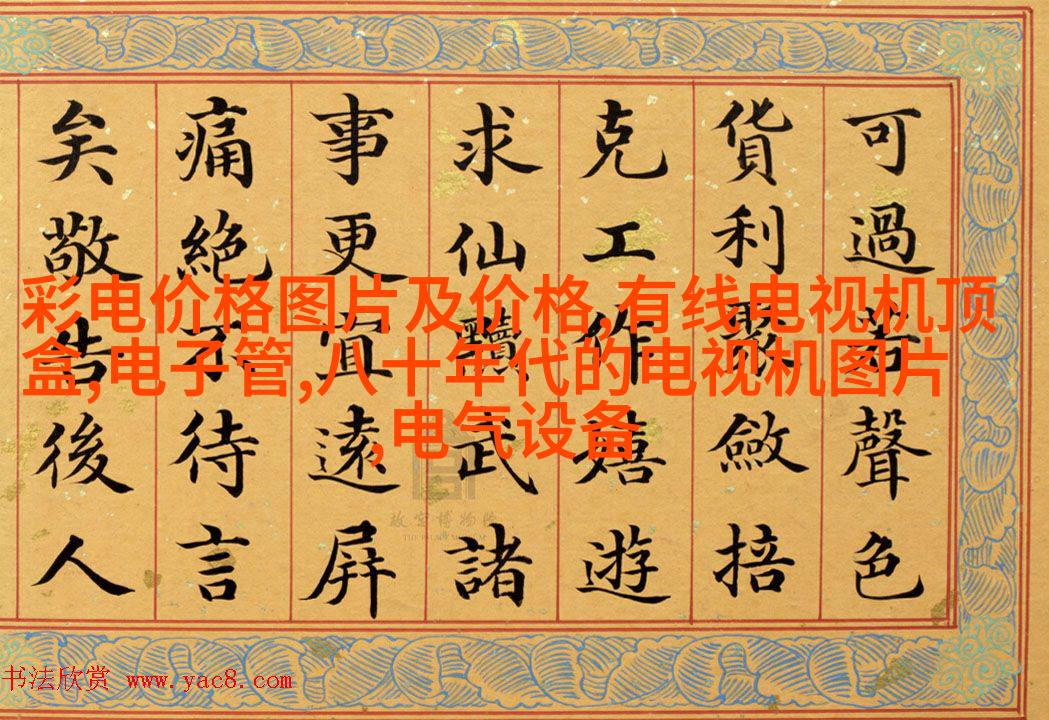 可過聲色
貨利聚斂掊
克工作嬉遊
求仙黷武諸
事更宜遠屏
痛絕不待言
矣敬告後人
彩电价格图片及价格,有线电视机顶
盒,电子管,八十年代的电视机图片
,电气设备
故宫博物院
THE PALACE MUSEUM
书法欣赏 www.yac8.com